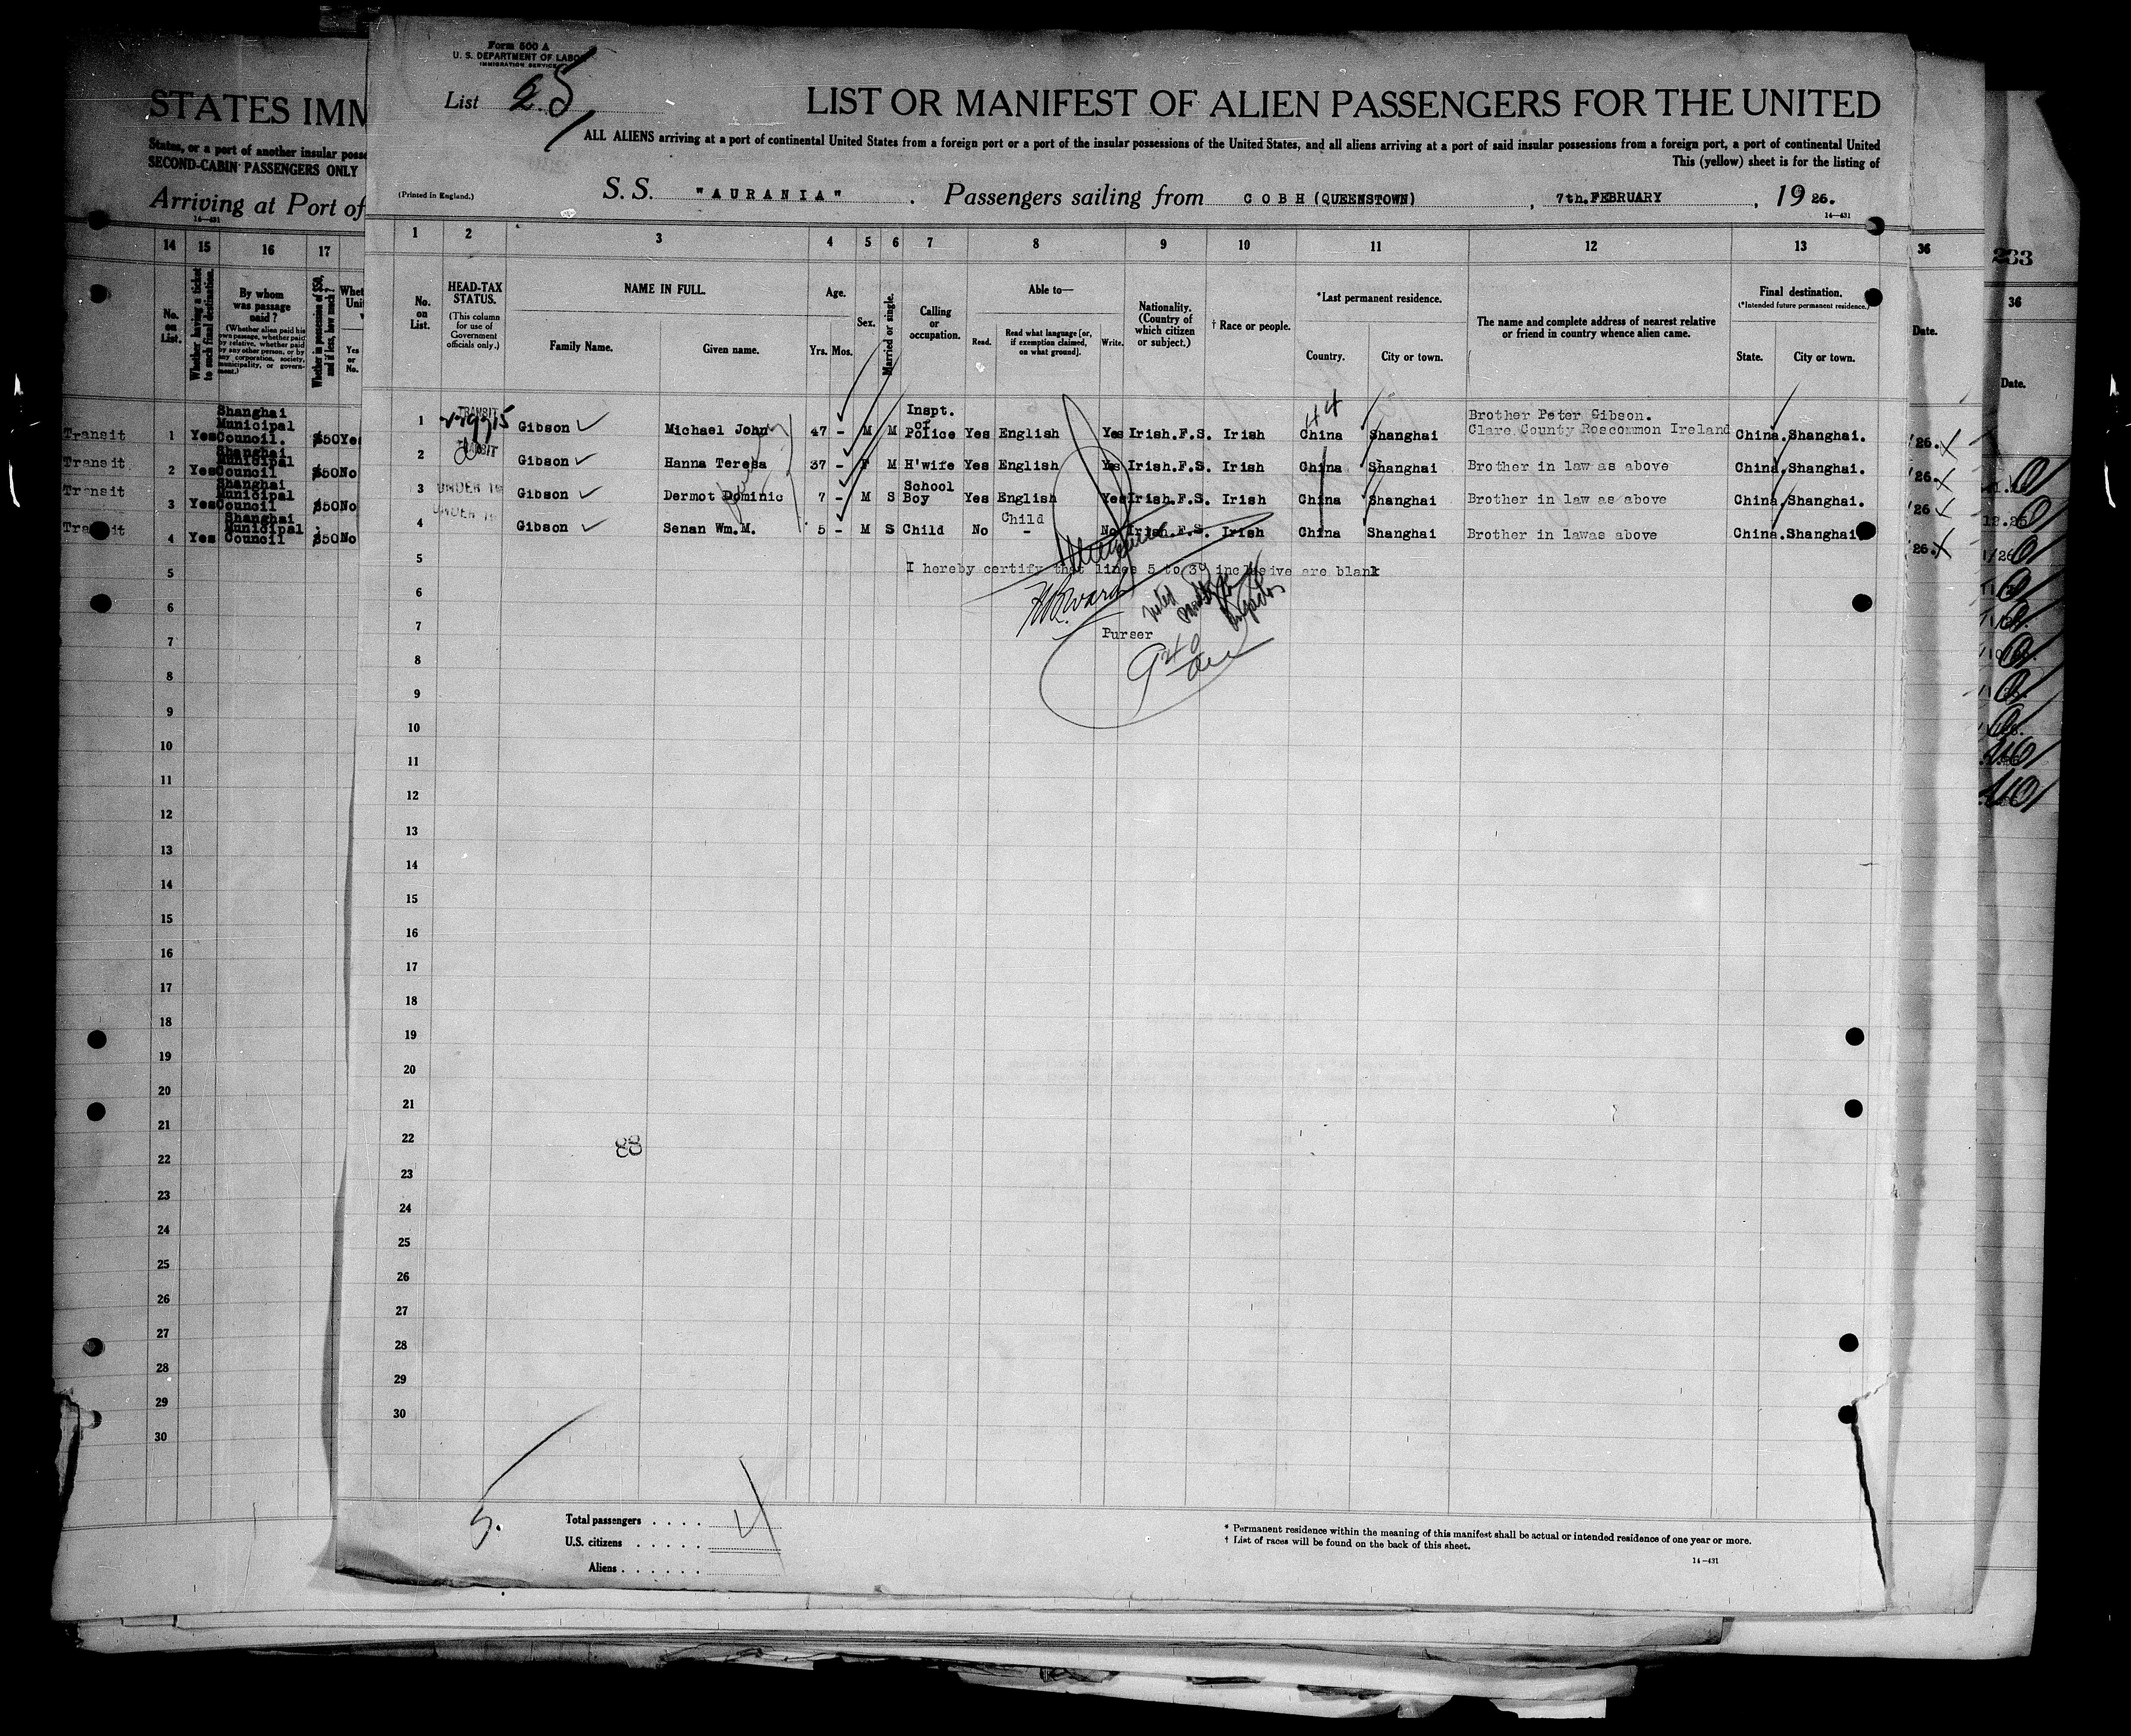 Form 500 A
U. S. DEPARTMENT OF LABOR
IMMIGRATION SERVICE
List 25
LIST OR MANIFEST OF ALIEN PASSENGERS FOR THE UNITED
ALL ALIENS arriving at a port of continental United States from a foreign port or a port of the insular possessions of the United States, and all aliens arriving at a port of said insular possessions from a foreign port, a port of continental United
This (yellow) sheet is for the listing of
(Printed in England.)
S. S. "AURANIA". Passengers sailing from COBH (QUEENSTOWN), 7th.FEBRUARY, 1926.
14—431
1 2 3 4 5 6 7 8 9 10 11 12 13
No. on List.
HEAD-TAX STATUS.
(This column for use of Government officials only.)
NAME IN FULL.
Family Name. Given name.
Age.
Yrs. Mos.
Sex.
Married or single.
Calling or occupation.
Able to—
Read. Read what language [or, if exemption claimed, on what ground]. Write.
Nationality. (Country of which citizen or subject.)
† Race or people.
*Last permanent residence.
Country. City or town.
The name and complete address of nearest relative or friend in country whence alien came.
Final destination.
(*Intended future permanent residence.)
State. City or town.
1 TRANSIT Gibson Michael John 47 - M M Inspt. of Police Yes English Yes Irish.F.S. Irish China Shanghai Brother Peter Gibson. Clare County Roscommon Ireland China.Shanghai.
2 TRANSIT Gibson Hanna Teresa 37 - F M H'wife Yes English Yes Irish.F.S. Irish China Shanghai Brother in law as above China.Shanghai.
3 UNDER 16 Gibson Dermot Dominic 7 - M S School Boy Yes English Yes Irish.F.S. Irish China Shanghai Brother in law as above China.Shanghai.
4 UNDER 16 Gibson Senan Wm.M. 5 - M S Child No Child - No Irish.F.S. Irish China Shanghai Brother in lawas above China.Shanghai
I hereby certify that lines 5 to 30 inclusive are blank
Purser
5
6
7
8
9
10
11
12
13
14
15
16
17
18
19
20
21
22
23
24
25
26
27
28
29
30
88
5.
Total passengers . . . . 4
U.S. citizens . . . . .
Aliens . . . . . .
* Permanent residence within the meaning of this manifest shall be actual or intended residence of one year or more.
† List of races will be found on the back of this sheet.
14—431
STATES IMM
States, or a port of another insular posse
SECOND-CABIN PASSENGERS ONLY
Arriving at Port of
14—431
14 15 16 17
No. on List.
Whether having a ticket to such final destination.
By whom was passage paid?
(Whether alien paid his own passage, whether paid by relative, whether paid by any other person, or by any corporation, society, municipality, or government.)
Whether in possession of $50, and if less, how much?
Yes or No.
Transit 1 Yes Shanghai Municipal Council. $50 Yes
Transit 2 Yes Shanghai Municipal Council $50 No
Transit 3 Yes Shanghai Municipal Council $50 No
Transit 4 Yes Shanghai Municipal Council $50 No
5
6
7
8
9
10
11
12
13
14
15
16
17
18
19
20
21
22
23
24
25
26
27
28
29
30
36
Date.
26.
26.
26
26.
233
36
Date.